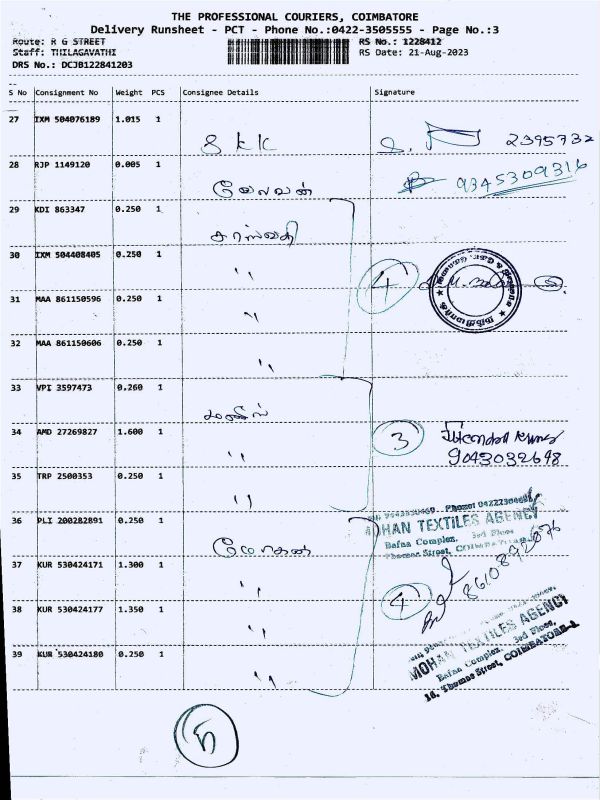 THE PROFESSIONAL COURIERS, COIMBATORE
Delivery Runsheet - PCT - Phone No.:0422-3505555 - Page No.:3
Route: R G STREET
RS No.: 1228412
Staff: THILAGAVATHI
RS Date: 21-Aug-2023
DRS No.: DCJB122841203
S No Consignment No Weight PCS Consignee Details Signature
27 IXM 504076189 1.015 1
S K K 2395732
28 RJP 1149120 0.005 1
வேலவன் 9345309316
29 KDI 863347 0.250 1
சரஸ்வதி
30 IXM 504408405 0.250 1
" 4
31 MAA 861150596 0.250 1
"
32 MAA 861150606 0.250 1
"
33 VPI 3597473 0.260 1
34 AMD 27269827 1.600 1
" 3
9043032698
35 TRP 2500353 0.250 1
"
36 PLI 200282891 0.250 1
மோகன்
MOHAN TEXTILES AGENCY
Bafna Complex, 3rd Floor
Thomas Street, COIMBATORE
37 KUR 530424171 1.300 1
" 8610892676
38 KUR 530424177 1.350 1
" 4
39 KUR 530424180 0.250 1
"
MOHAN TEXTILES AGENCY
Bafna Complex, 3rd Floor,
16, Thomas Street, COIMBATORE-1